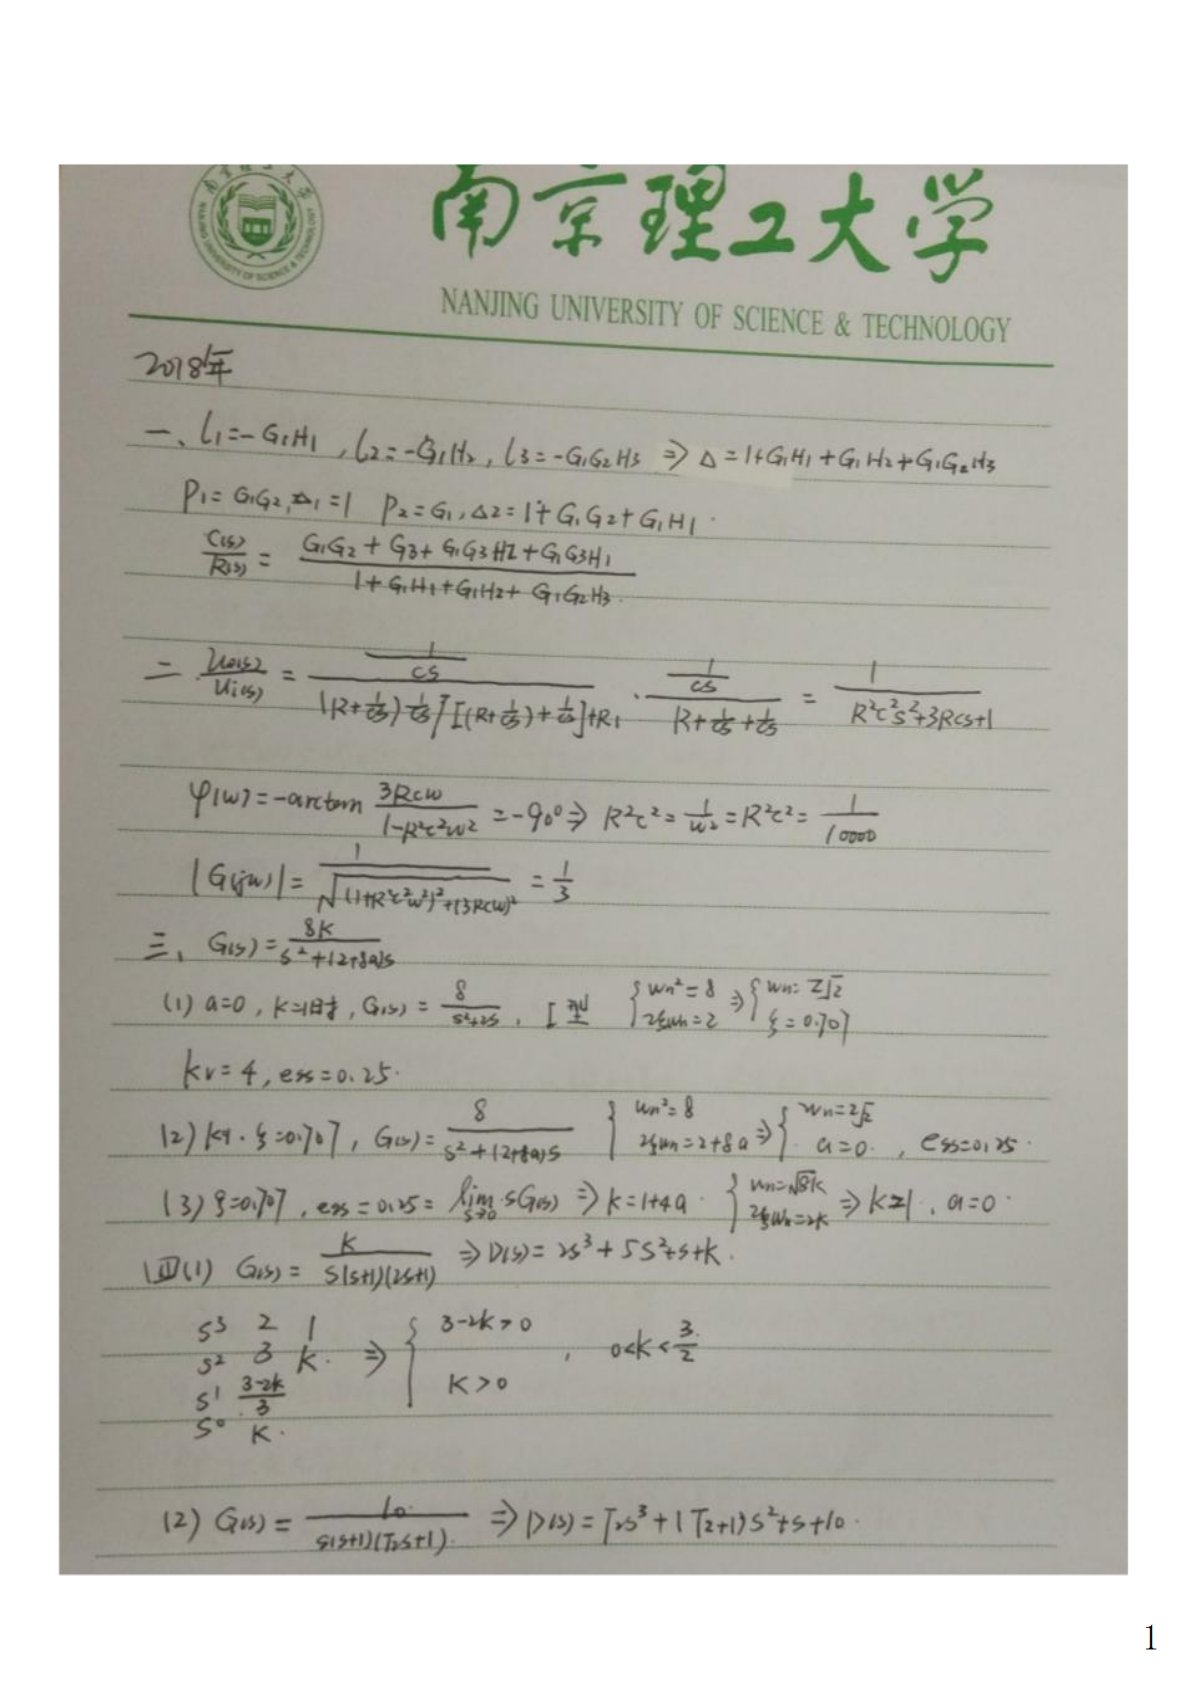 南京理工大学
NANJING UNIVERSITY OF SCIENCE & TECHNOLOGY
南京理工大学
NANJING UNIVERSITY OF SCIENCE & TECHNOLOGY
2018年
一、L1=-G1H1, L2=-G1H2, L3=-G1G2H3 ⇒ Δ=1+G1H1+G1H2+G1G2H3
P1=G1G2, Δ1=1 P2=G1, Δ2=1+G1G2+G1H1.
C(s)/R(s) = (G1G2+G3+G1G3H2+G1G3H1)/(1+G1H1+G1H2+G1G2H3.)
二. Uo(s)/Ui(s) = (1/CS)/((R+1/CS)·1/CS/[(R+1/CS)+1/CS]+R1 · (1/CS)/(R+1/CS+1/CS) = 1/(R²C²S²+3RCS+1)
φ(w)=-arctan 3RCW/(1-R²C²W²) =-90° ⇒ R²C²=1/W²=R²C²=1/10000
|G(jw)|=1/√((1+R²C²W²)²+(3RCW)²) =1/3
三、G(s)=8K/(S²+(2+8a)S
(1) a=0, K=1时, G(s)=8/(S²+2S), I型 {Wn²=8 2ξWn=2 ⇒ {Wn=2√2 ξ=0.707
Kv=4, ess=0.25.
(2) K=1. ξ=0.707, G(s)=8/(S²+(2+8a)S {Wn²=8 2ξWn=2+8a ⇒ {Wn=2√2 a=0., ess=0.25.
(3) ξ=0.707, ess=0.25=lim s→0 ·SG(s) ⇒ K=1+4a. {Wn=√8K 2ξWn=2K ⇒ K=1, a=0.
四(1) G(s)=K/(S(S+1)(2S+1)) ⇒ D(s)=2S³+5S²+S+K.
S³ 2 1
S² 3 K. ⇒ { 3-2K>0 K>0, 0<K<3/2
S¹ (3-2K)/3
S⁰ K.
(2) G(s)=10/(S(S+1)(T2S+1).) ⇒ D(s)=T2S³+(T2+1)S²+S+10.
1